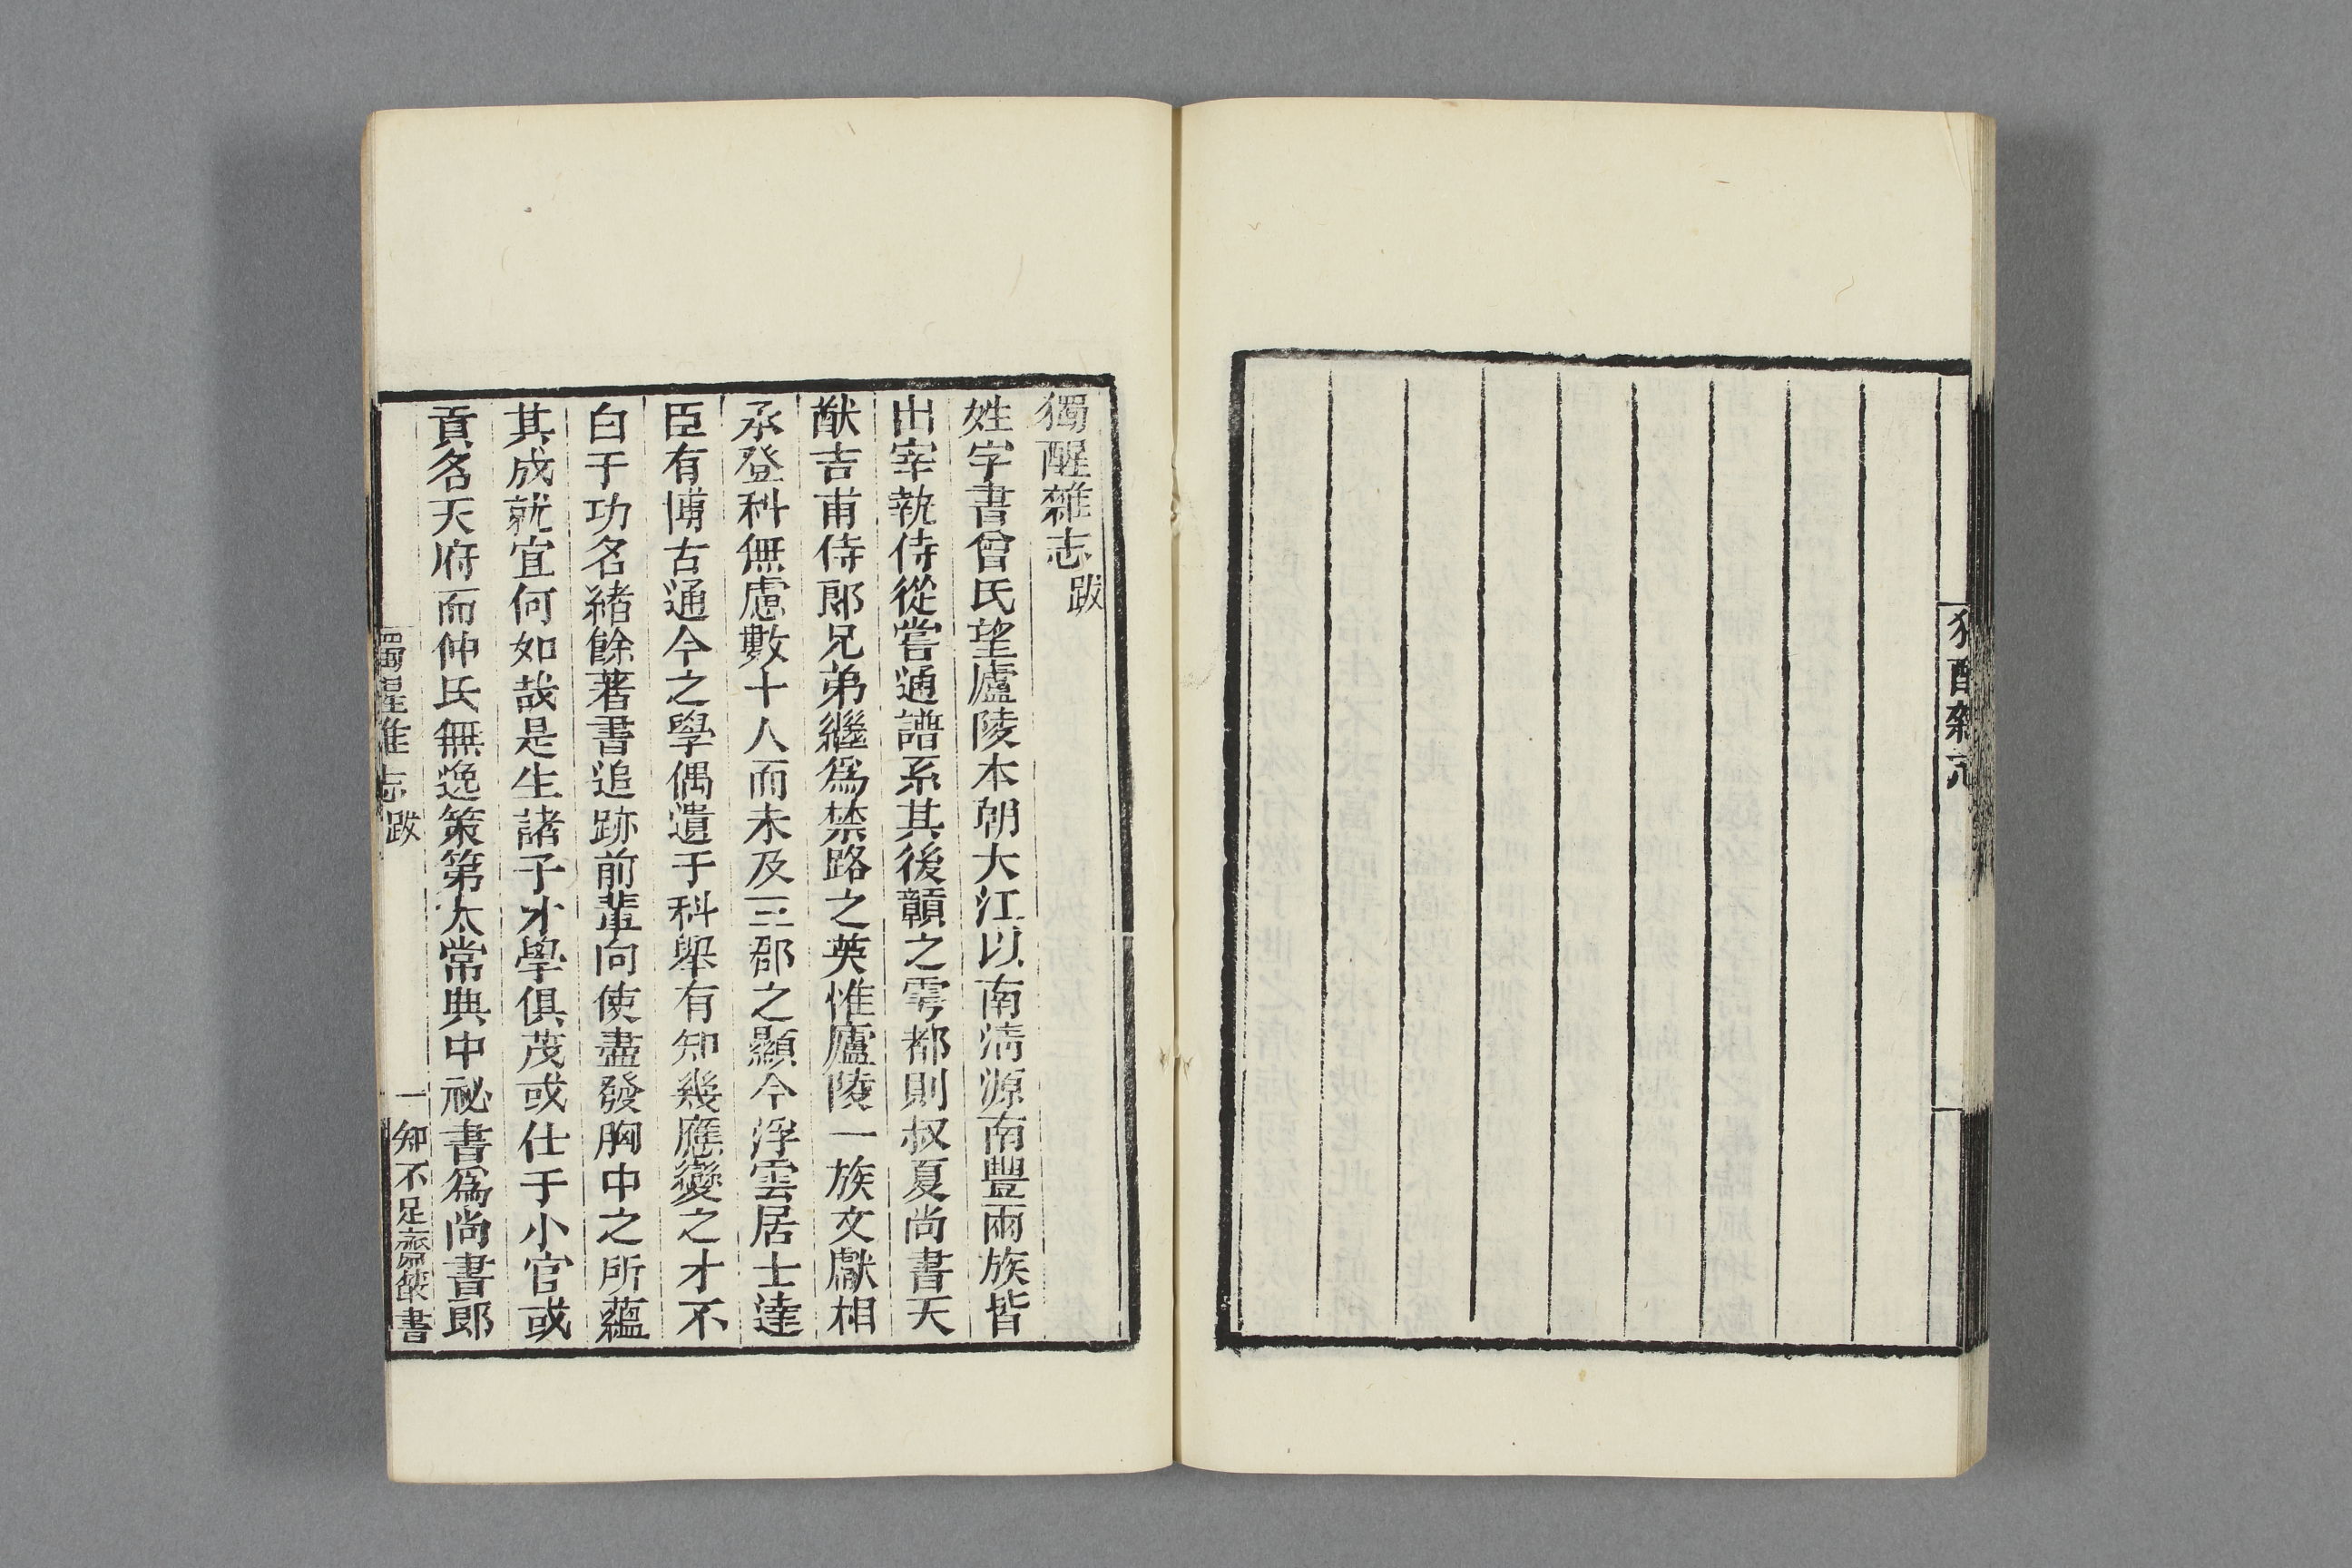 獨醒雜志跋
姓字書曾氏望廬陵本朝大江以南淸源南豐兩族皆
出宰執侍從嘗通譜系其後贑之雩都則叔夏尚書天
猷吉甫侍郎兄弟繼爲禁路之英惟廬陵一族文獻相
承登科無慮數十人而未及三郡之顯今浮雲居士達
臣有博古通今之學偶遺于科舉有知幾應變之才不
白于功名緒餘著書追跡前輩向使盡發胸中之所蘊
其成就宜何如哉是生諸子才學俱茂或仕于小官或
貢名天府而仲氏無逸策第太常典中祕書爲尚書郎
獨醒雜志跋
一
知不足齋叢書